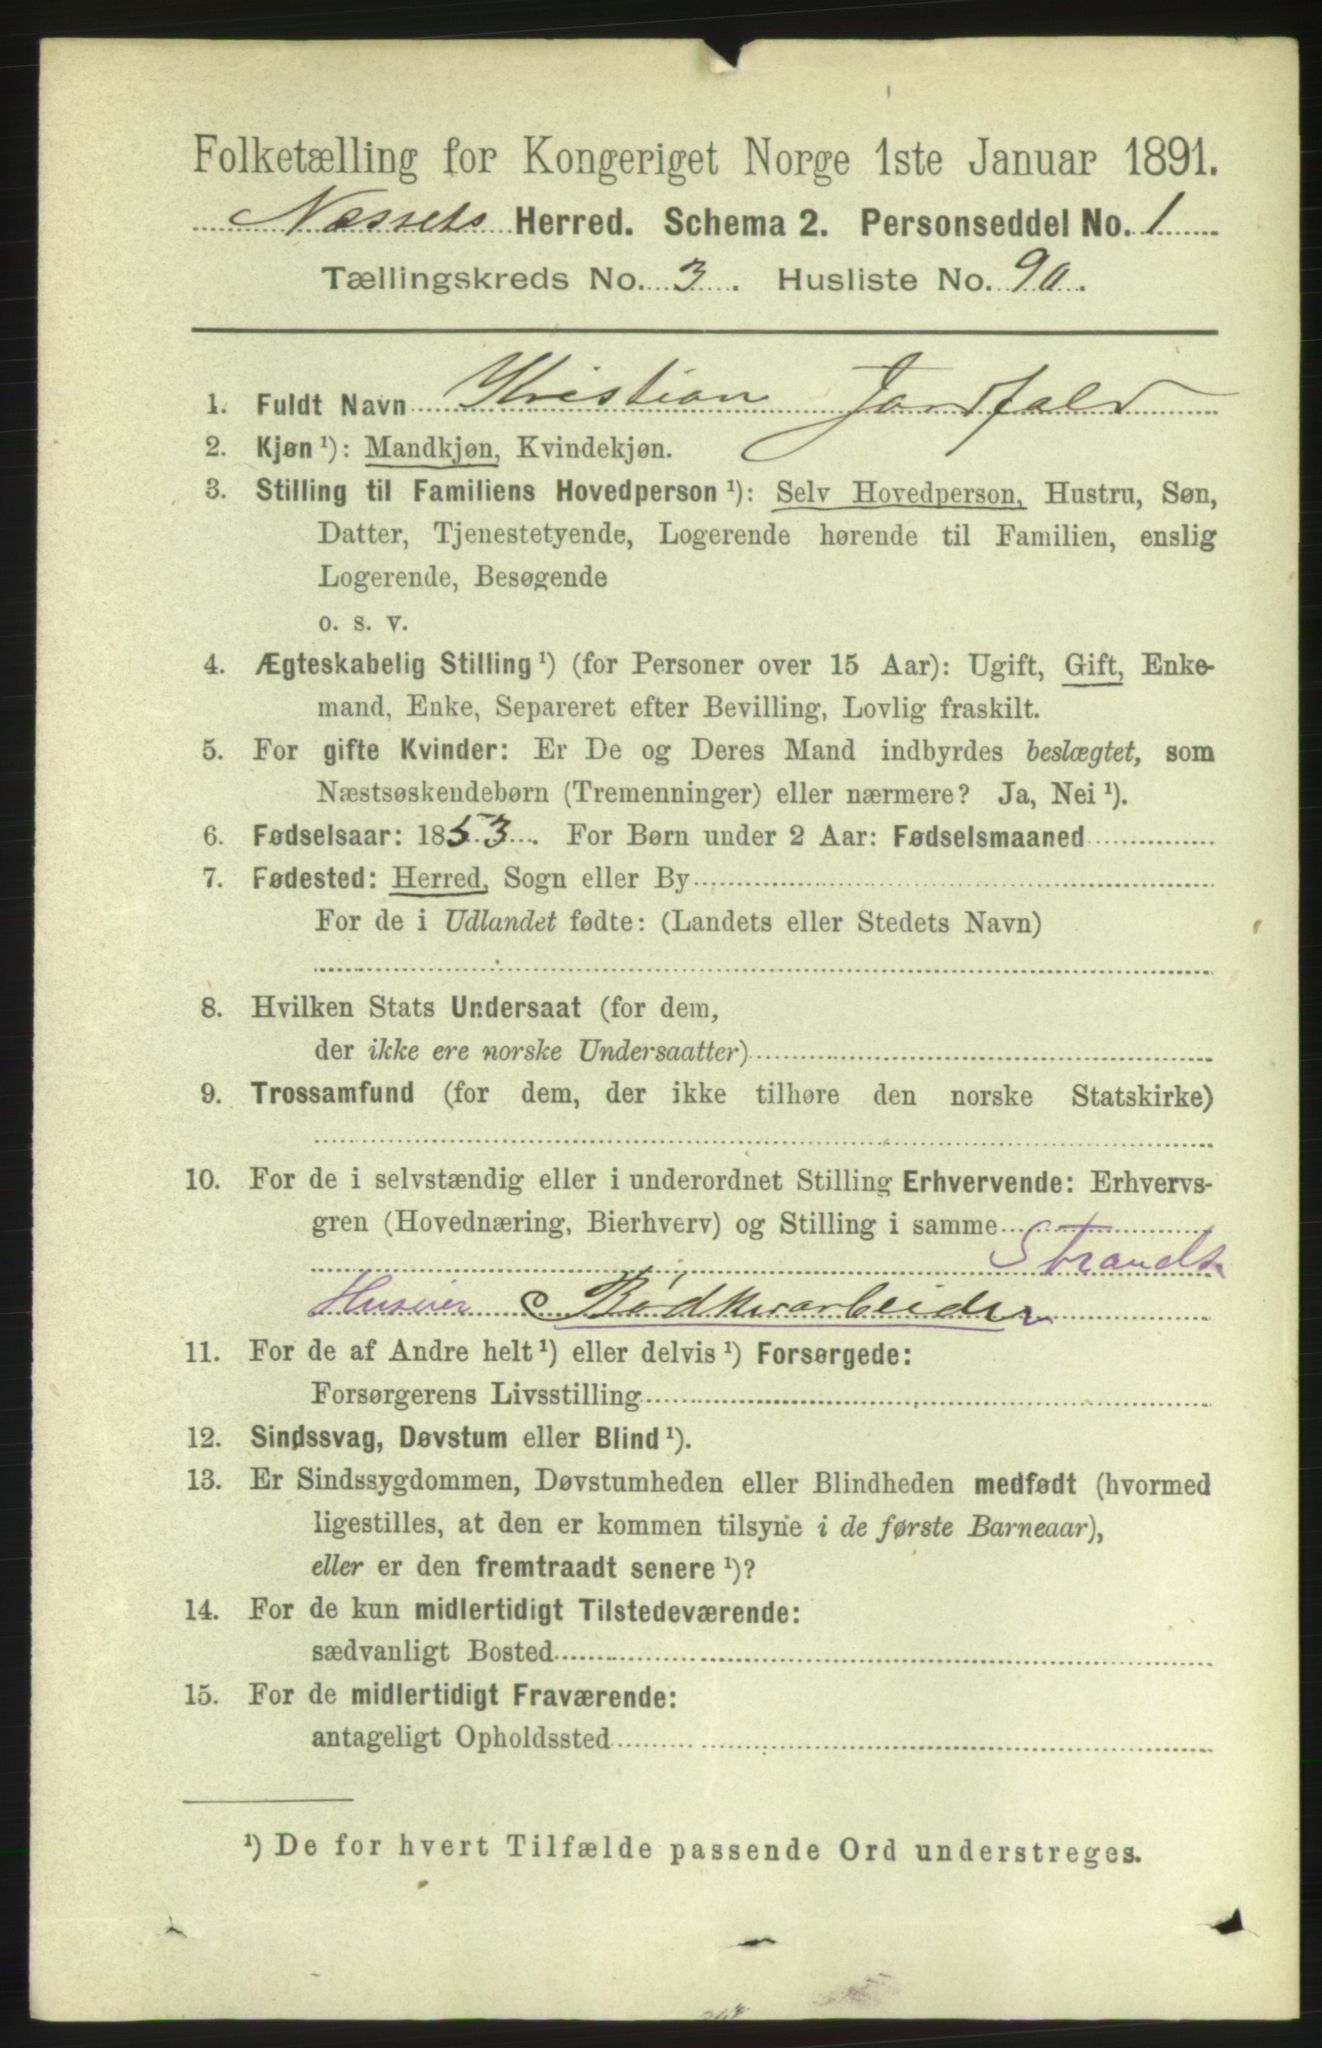 Folketælling for Kongeriget Norge 1ste Januar 1891.
Næssets Herred. Schema 2. Personseddel No. 1
Tællingskreds No. 3. Husliste No. 90.
1. Fuldt Navn Kristian Jordfald
2. Kjøn ¹): Mandkjøn, Kvindekjøn.
3. Stilling til Familiens Hovedperson ¹): Selv Hovedperson, Hustru, Søn,
Datter, Tjenestetyende, Logerende hørende til Familien, enslig
Logerende, Besøgende
o. s. v.
4. Ægteskabelig Stilling ¹) (for Personer over 15 Aar): Ugift, Gift, Enke-
mand, Enke, Separeret efter Bevilling, Lovlig fraskilt.
5. For gifte Kvinder: Er De og Deres Mand indbyrdes beslægtet, som
Næstsøskendebørn (Tremenninger) eller nærmere? Ja, Nei ¹).
6. Fødselsaar: 1853. For Børn under 2 Aar: Fødselsmaaned
7. Fødested: Herred, Sogn eller By
For de i Udlandet fødte: (Landets eller Stedets Navn)
8. Hvilken Stats Undersaat (for dem,
der ikke ere norske Undersaatter)
9. Trossamfund (for dem, der ikke tilhøre den norske Statskirke)
10. For de i selvstændig eller i underordnet Stilling Erhvervende: Erhvervs-
gren (Hovednæring, Bierhverv) og Stilling i samme
Strands
Huseier Bødkerarbeider
11. For de af Andre helt ¹) eller delvis ¹) Forsørgede:
Forsørgerens Livsstilling
12. Sindssvag, Døvstum eller Blind ¹).
13. Er Sindssygdommen, Døvstumheden eller Blindheden medfødt (hvormed
ligestilles, at den er kommen tilsyne i de første Barneaar),
eller er den fremtraadt senere ¹)?
14. For de kun midlertidigt Tilstedeværende:
sædvanligt Bosted
15. For de midlertidigt Fraværende:
antageligt Opholdssted
¹) De for hvert Tilfælde passende Ord understreges.